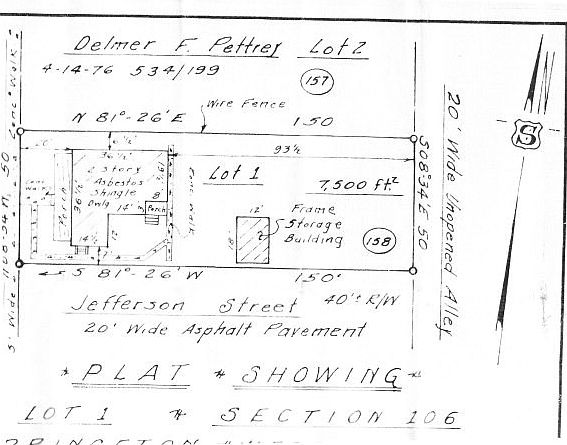 Delmer F. Pettrey Lot 2
4-14-76 534/199
157
N 81°-26' E
Wire Fence
150
20'
6½'
36½'
93½
2 Story
Asbestos
Shingle
Dwlg
Porch
36½'
14'
8
Porch
14½'
12
Conc Walk
Lot 1
7,500 ft.²
12'
18'
Frame
Storage
Building
158
S 81°-26' W
150'
Jefferson Street 40'± R/W
20' Wide Asphalt Pavement
S 08°34 E 50
20' Wide Unopened Alley
S
5' Wide
50
Conc Walk
* PLAT * SHOWING *
LOT 1 * SECTION 106